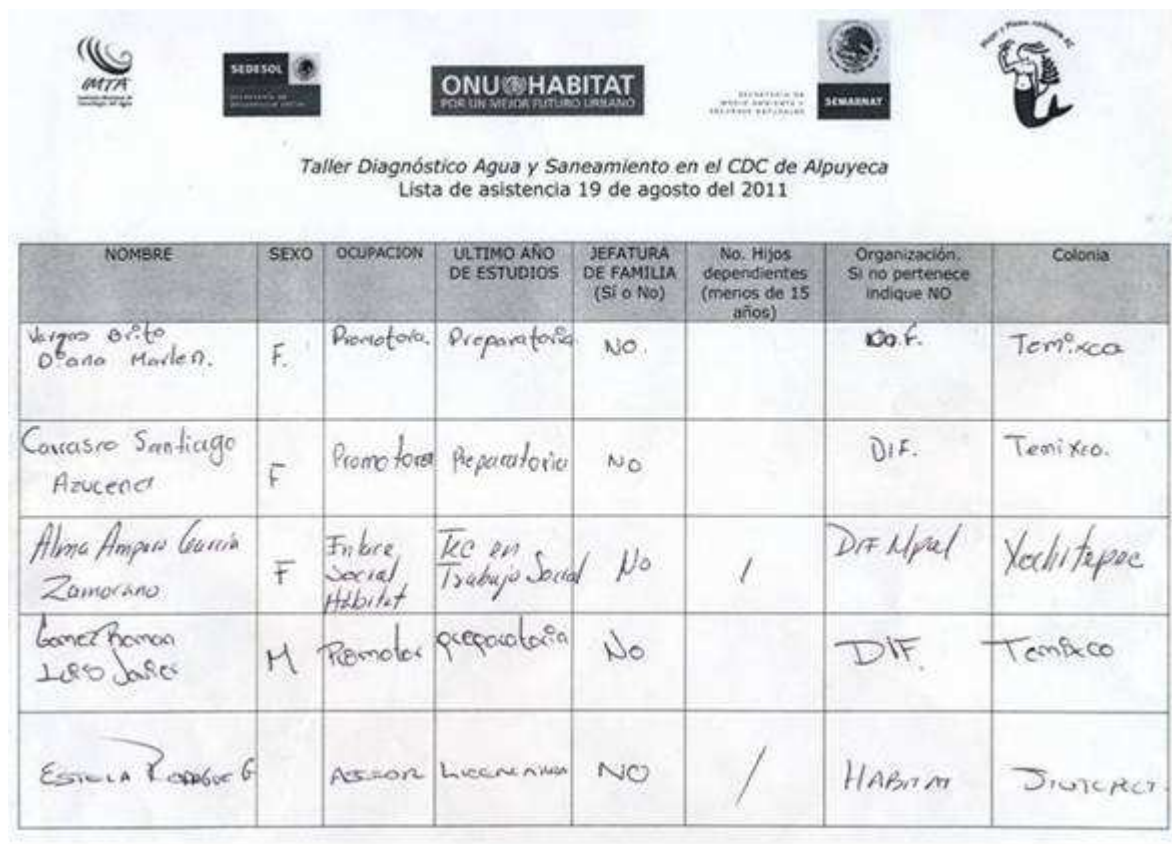 IMTA
SEDESOL
ONU HABITAT
POR UN MEJOR FUTURO URBANO
SECRETARÍA DE
MEDIO AMBIENTE Y
RECURSOS NATURALES
SEMARNAT
Taller Diagnóstico Agua y Saneamiento en el CDC de Alpuyeca
Lista de asistencia 19 de agosto del 2011
NOMBRE SEXO OCUPACION ULTIMO AÑO DE ESTUDIOS JEFATURA DE FAMILIA (Sí o No) No. Hijos dependientes (menos de 15 años) Organización. Si no pertenece indique NO Colonia
Vargas Brito
Diana Marlen. F. Promotora. Preparatoria. NO. Temixco
Carrasco Santiago
Azucena F Promotora Preparatoria NO DIF. Temixco.
Alma Amparo García
Zamorano F Enlace Social Hábitat Tec en Trabajo Social No / DIF Mpal Xochitepec
Gomez Roman
Luis Javier M Promotor preparatoria No DIF. Temixco
ESTELA F ASESOR NO / HABITAT JIUTEPEC.